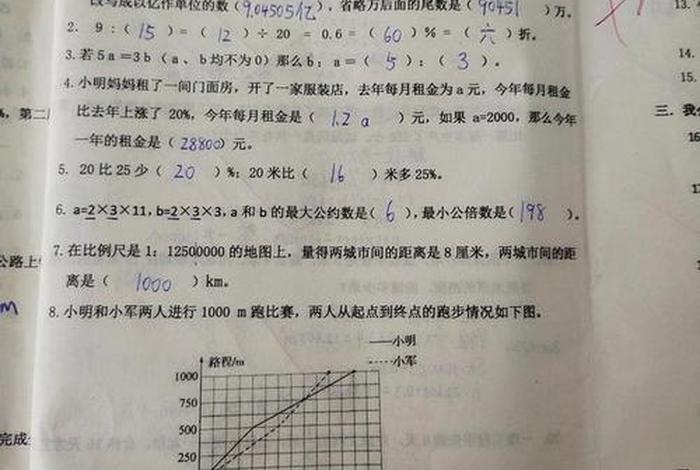 改写成以亿作单位的数(9.04505亿),省略万后面的尾数是(90451)万。
13.
2. 9:(15)=(12)÷20=0.6=(60)%=(六)折。
3.若5a=3b(a、b均不为0)那么b:a=(5):(3)。
14.
4.小明妈妈租了一间门面房,开了一家服装店,去年每月租金为a元,今年每月租金
15.
比去年上涨了20%,今年每月租金是(1.2a)元,如果a=2000,那么今年
%,第二
三.我
一年的租金是(28800)元。
16
5. 20比25少(20)%;20米比(16)米多25%。
6. a=2×3×11,b=2×3×3,a和b的最大公约数是(6),最小公倍数是(198)。
7.在比例尺是1:12500000的地图上,量得两城市间的距离是8厘米,两城市间的距
公路上
离是(1000)km。
m
8.小明和小军两人进行1000 m跑比赛,两人从起点到终点的跑步情况如下图。
——小明
路程/m
----小军
1000
750
500
完成
250